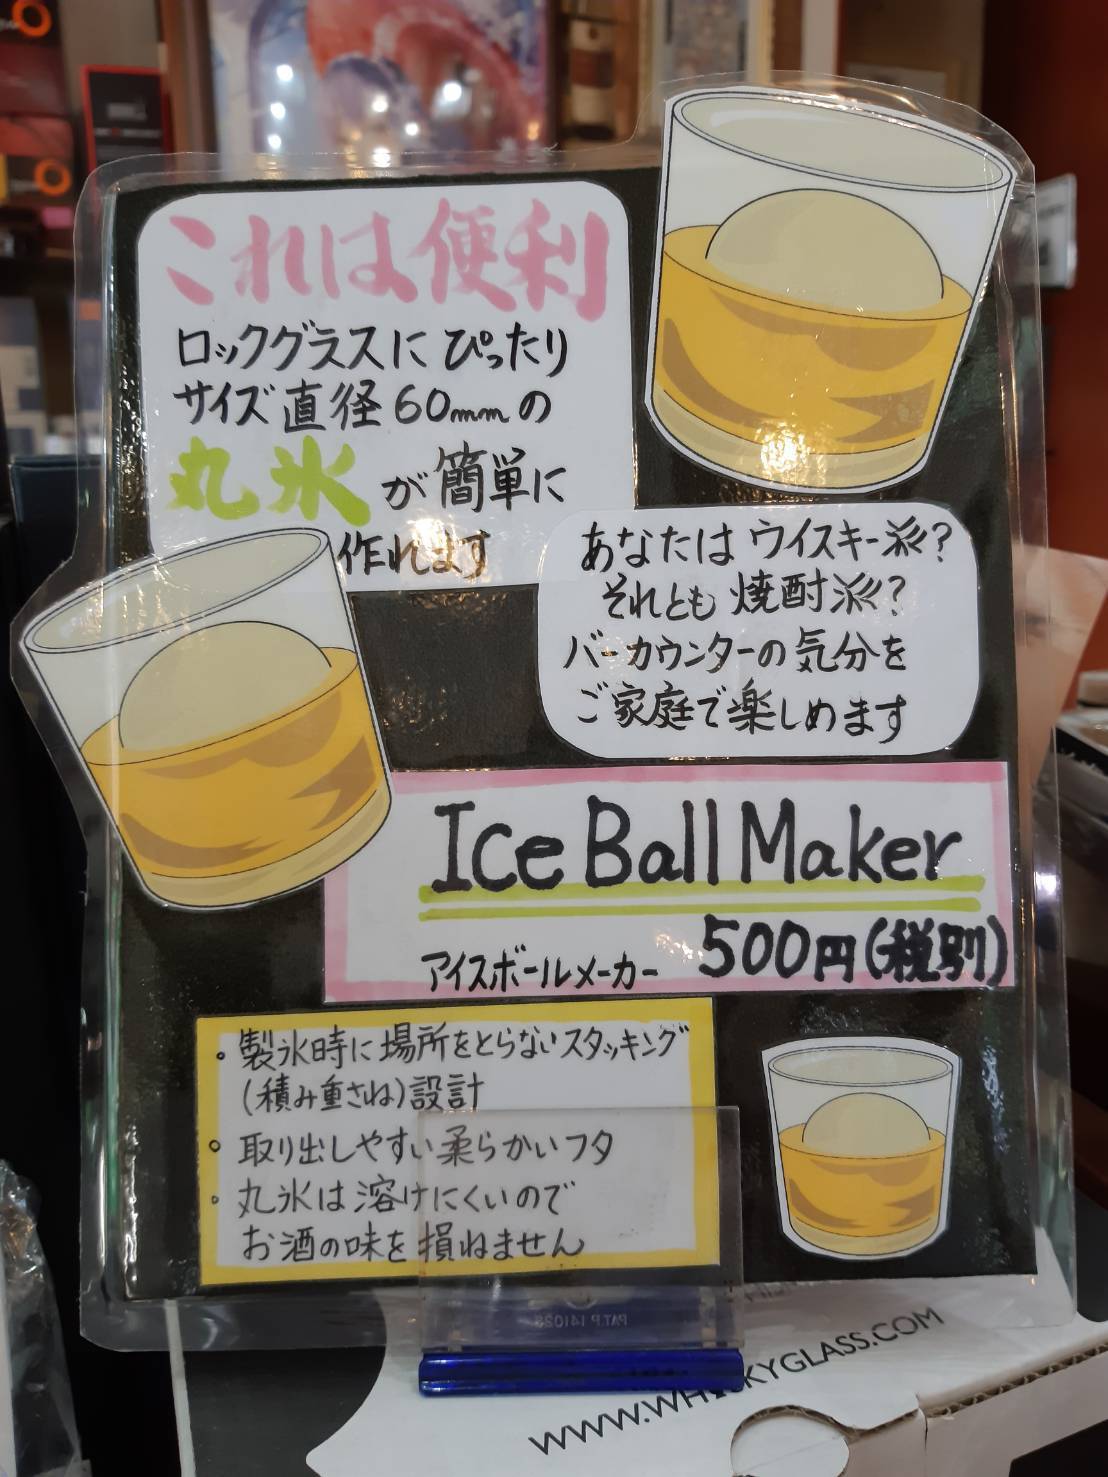 これは便利
ロックグラスにぴったり
サイズ直径60mmの
丸氷が簡単に
作れます
あなたはウイスキー派?
それとも焼酎派?
バーカウンターの気分を
ご家庭で楽しめます
Ice Ball Maker
アイスボールメーカー 500円(税別)
・製氷時に場所をとらないスタッキング
(積み重さね)設計
・取り出しやすい柔らかいフタ
・丸氷は溶けにくいので
お酒の味を損ねません
PAT.P 141028
WWW.WHISKYGLASS.COM